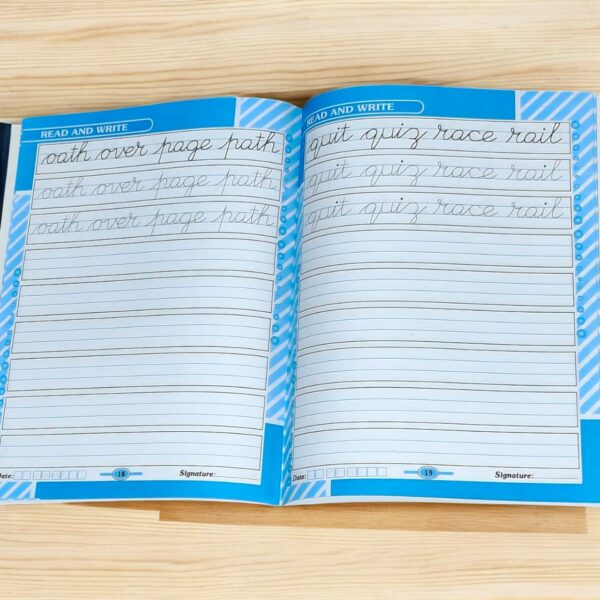 READ AND WRITE
oath over page path
oath over page path
oath over page path
Date:
18
Signature:
READ AND WRITE
quit quiz race rail
quit quiz race rail
quit quiz race rail
Date:
19
Signature: